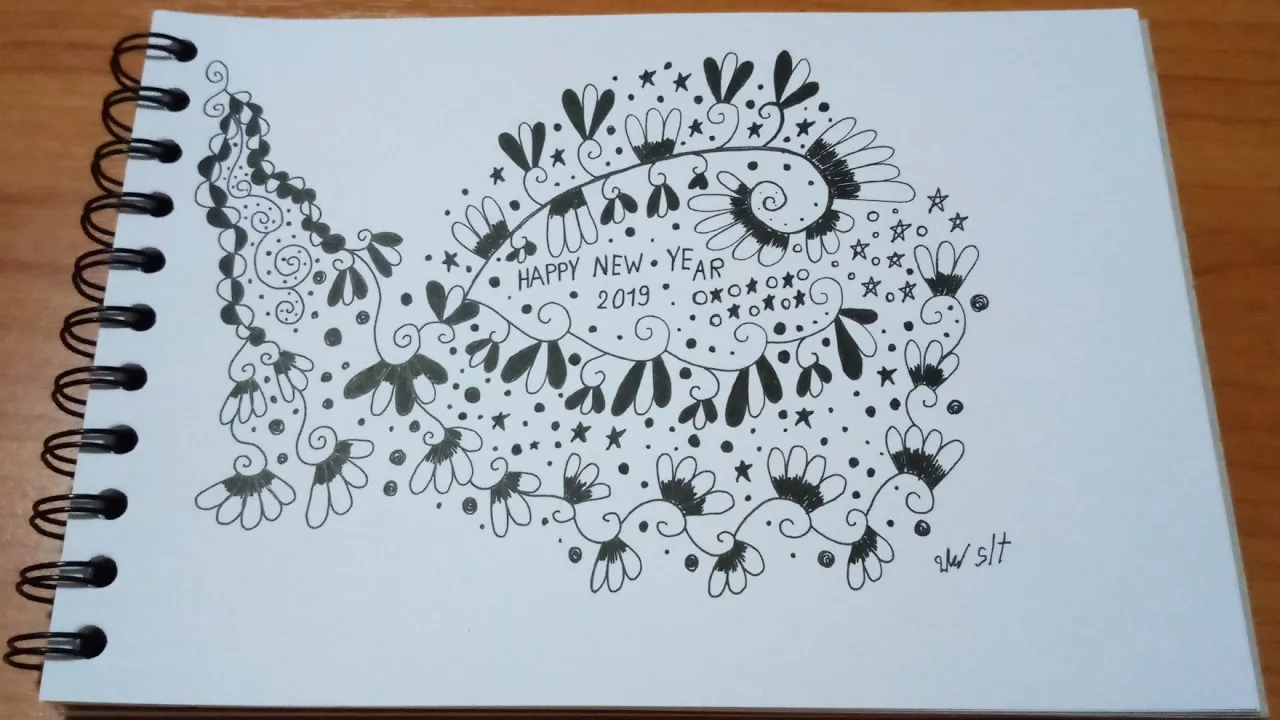 HAPPY NEW • YEAR
2019